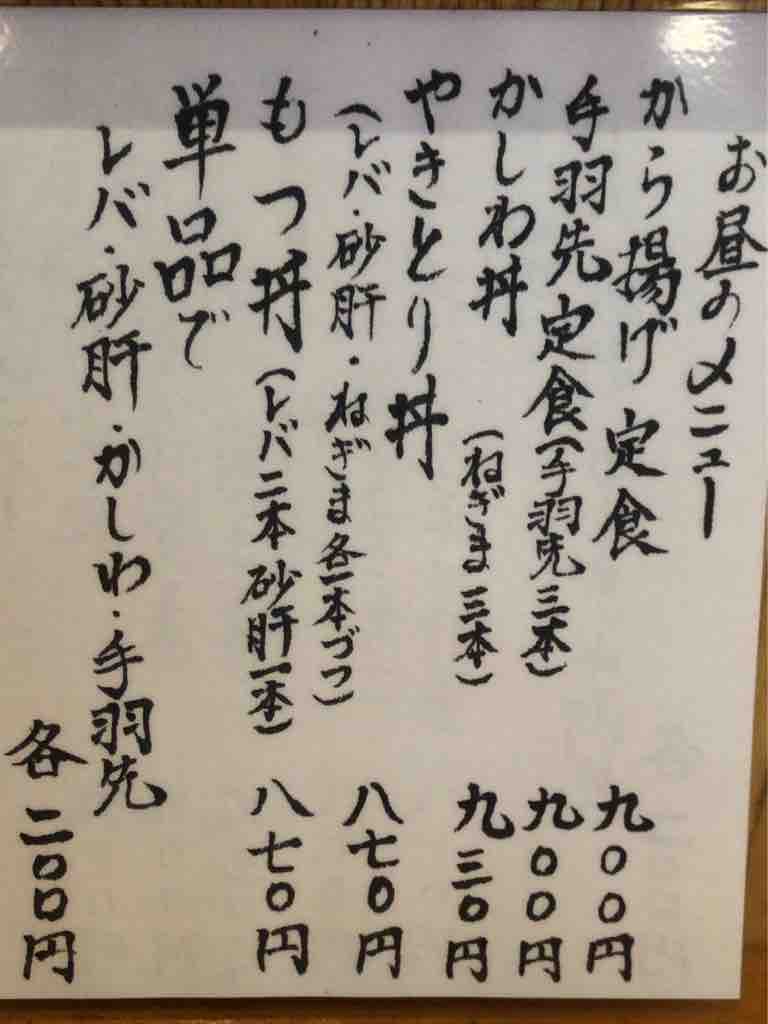 お昼のメニュー
から揚げ定食 九〇〇円
手羽先定食(手羽先三本) 九〇〇円
かしわ丼(ねぎま三本) 九三〇円
やきとり丼
(レバ・砂肝・ねぎま各一本づつ) 八七〇円
もつ丼(レバ二本砂肝一本) 八七〇円
単品で
レバ・砂肝・かしわ・手羽先
各二〇〇円